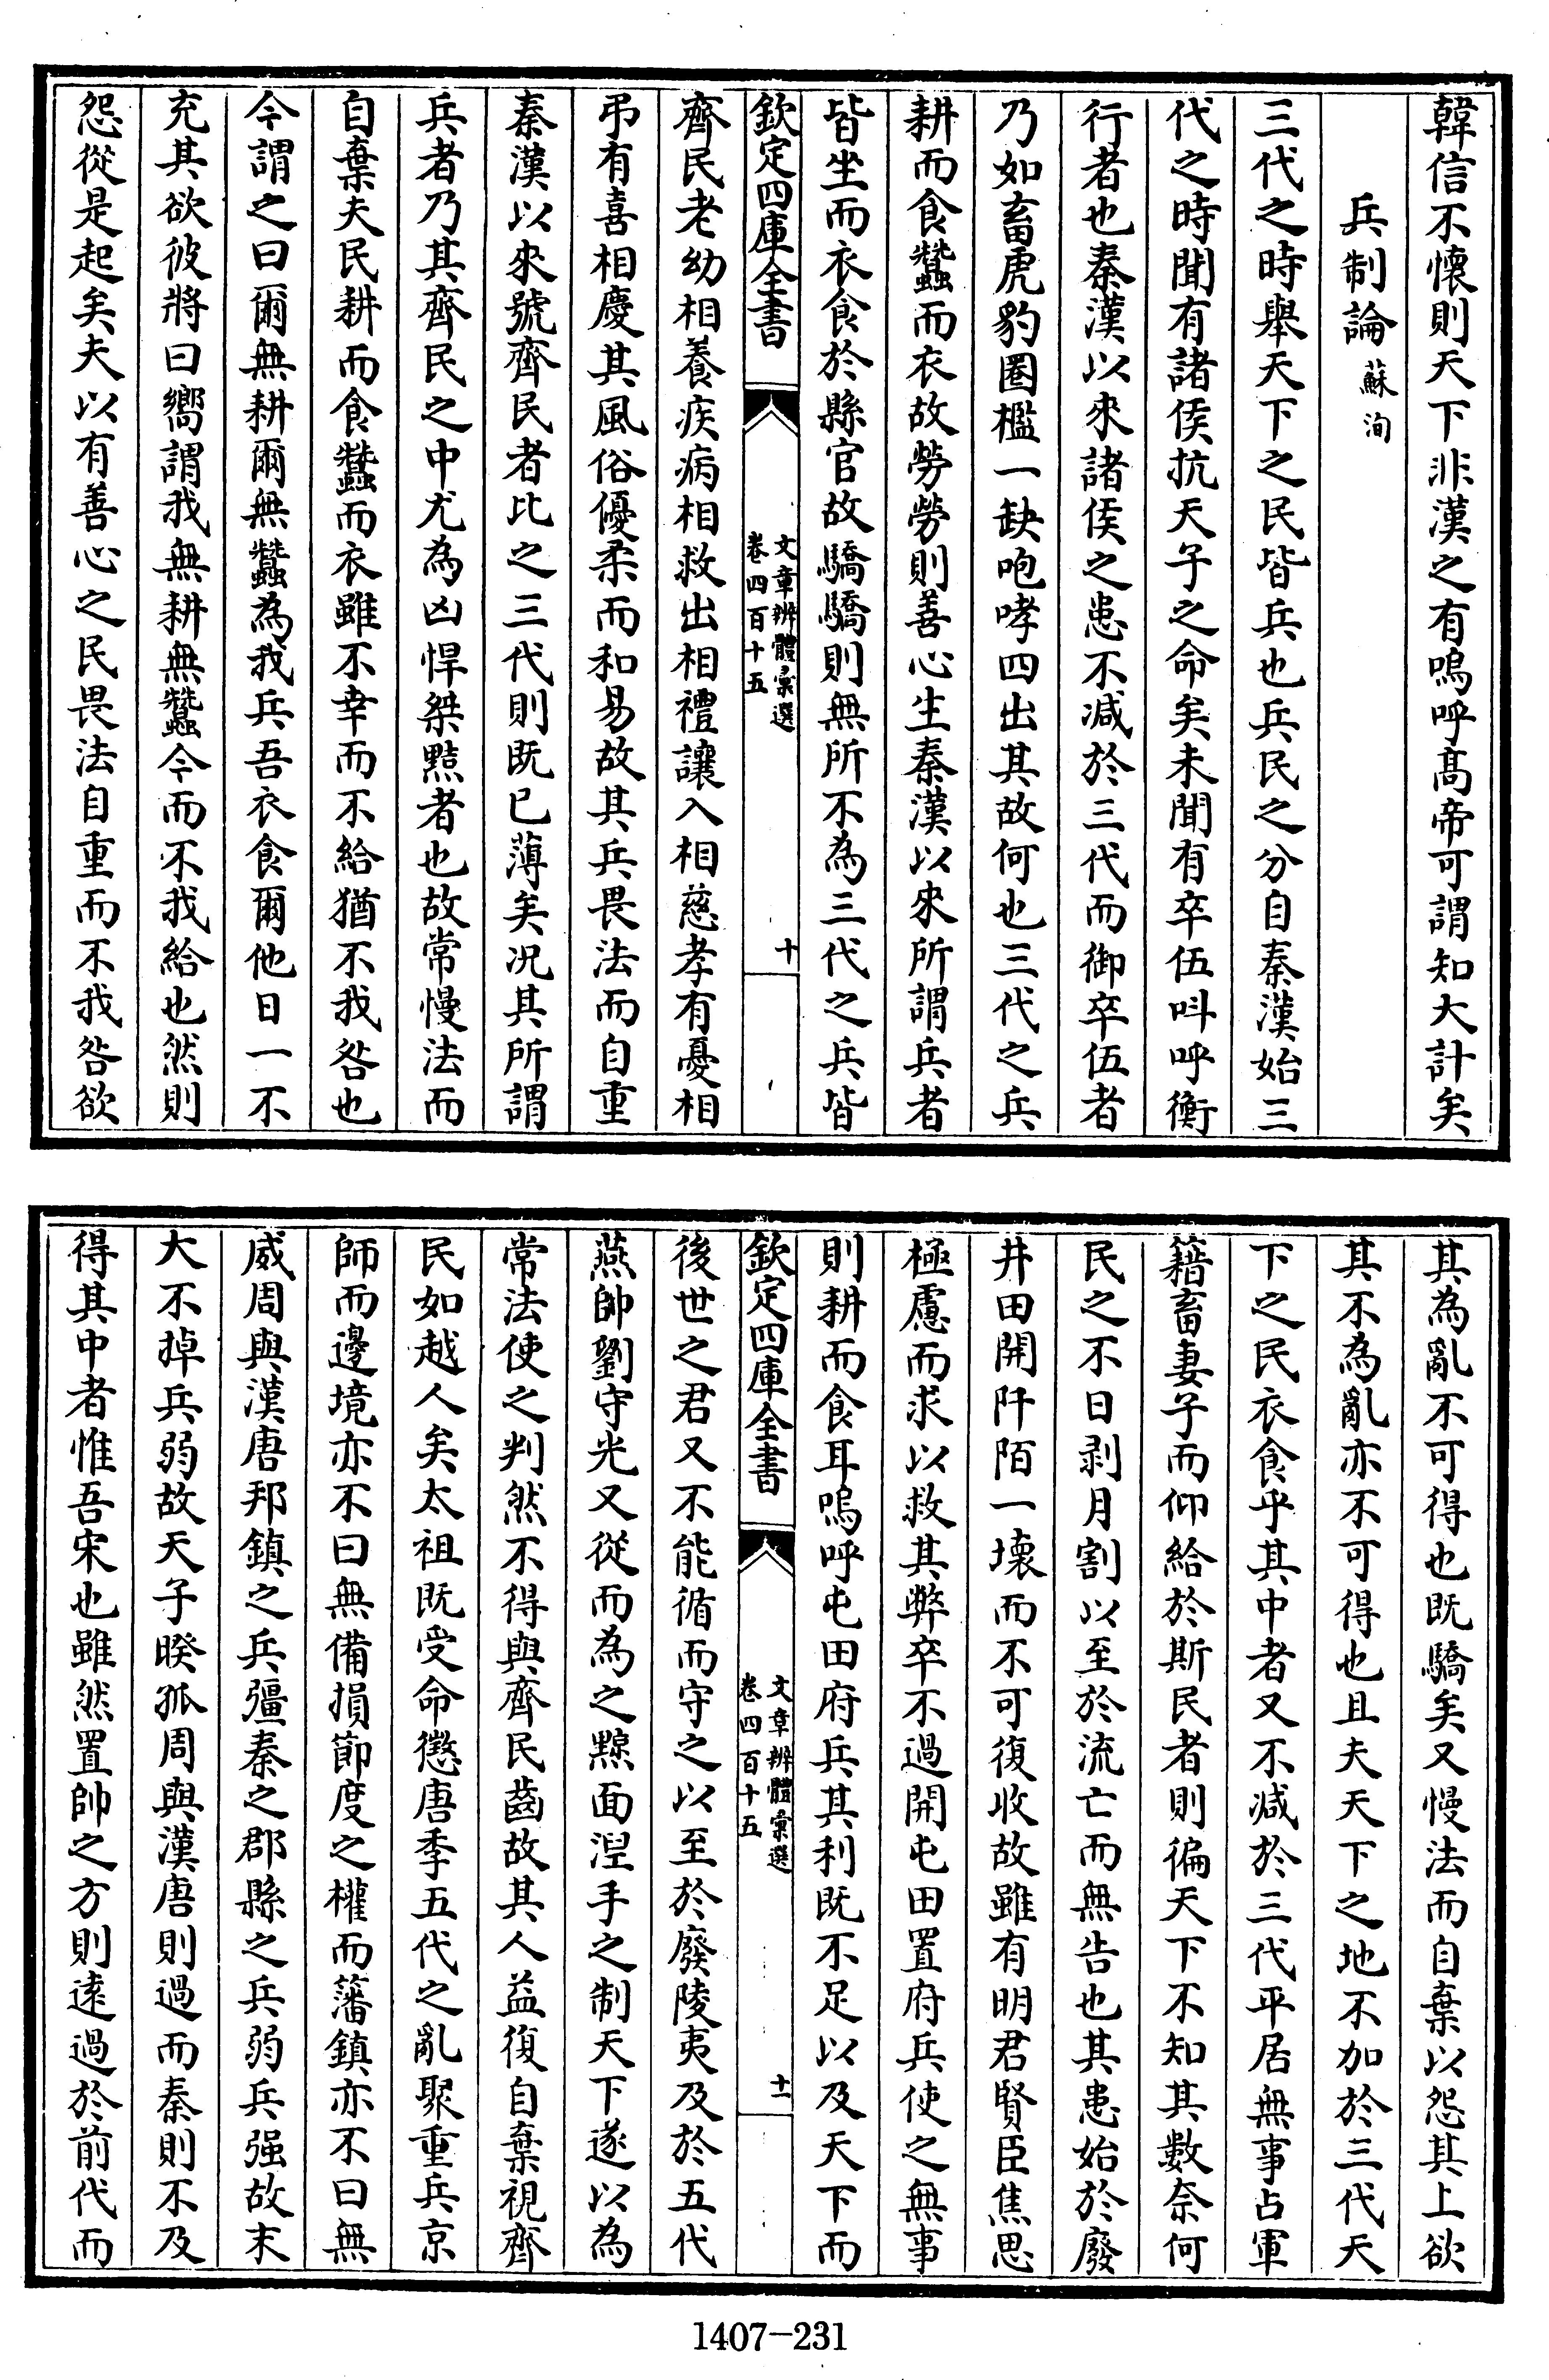 韓信不懷則天下非漢之有嗚呼髙帝可謂知大計矣
兵制論蘇洵
三代之時舉天下之民皆兵也兵民之分自秦漢始三
代之時聞有諸侯抗天子之命矣未聞有卒伍呌呼衡
行者也秦漢以來諸侯之患不减於三代而御卒伍者
乃如畜虎豹圏檻一缺咆哮四出其故何也三代之兵
耕而食蠶而衣故勞勞則善心生秦漢以來所謂兵者
皆坐而衣食於縣官故驕驕則無所不為三代之兵皆
欽定四庫全書
文章辨體彙選
卷四百十五
十
齊民老幼相養疾病相救出相禮讓入相慈孝有憂相
弔有喜相慶其風俗優柔而和易故其兵畏法而自重
秦漢以來號齊民者比之三代則既已薄矣况其所謂
兵者乃其齊民之中尤為凶悍桀黠者也故常慢法而
自棄夫民耕而食蠶而衣雖不幸而不給猶不我咎也
今謂之曰爾無耕爾無蠶為我兵吾衣食爾他日一不
充其欲彼將曰嚮謂我無耕無蠶今而不我給也然則
怨從是起矣夫以有善心之民畏法自重而不我咎欲
其為亂不可得也既驕矣又慢法而自棄以怨其上欲
其不為亂亦不可得也且夫天下之地不加於三代天
下之民衣食乎其中者又不减於三代平居無事占軍
籍畜妻子而仰給於斯民者則徧天下不知其數奈何
民之不日剥月割以至於流亡而無告也其患始於廢
井田開阡陌一壊而不可復收故雖有明君賢臣焦思
極慮而求以救其弊卒不過開屯田置府兵使之無事
則耕而食耳嗚呼屯田府兵其利既不足以及天下而
欽定四庫全書
文章辨體彙選
卷四百十五
十一
後世之君又不能循而守之以至於廢陵夷及於五代
燕帥劉守光又從而為之黥面湼手之制天下遂以為
常法使之判然不得與齊民齒故其人益復自棄視齊
民如越人矣太祖既受命懲唐季五代之亂聚重兵京
師而邊境亦不曰無備損節度之權而藩鎮亦不曰無
威周與漢唐邦鎮之兵彊秦之郡縣之兵弱兵强故末
大不掉兵弱故天子暌孤周與漢唐則過而秦則不及
得其中者惟吾宋也雖然置帥之方則逺過於前代而
1407-231